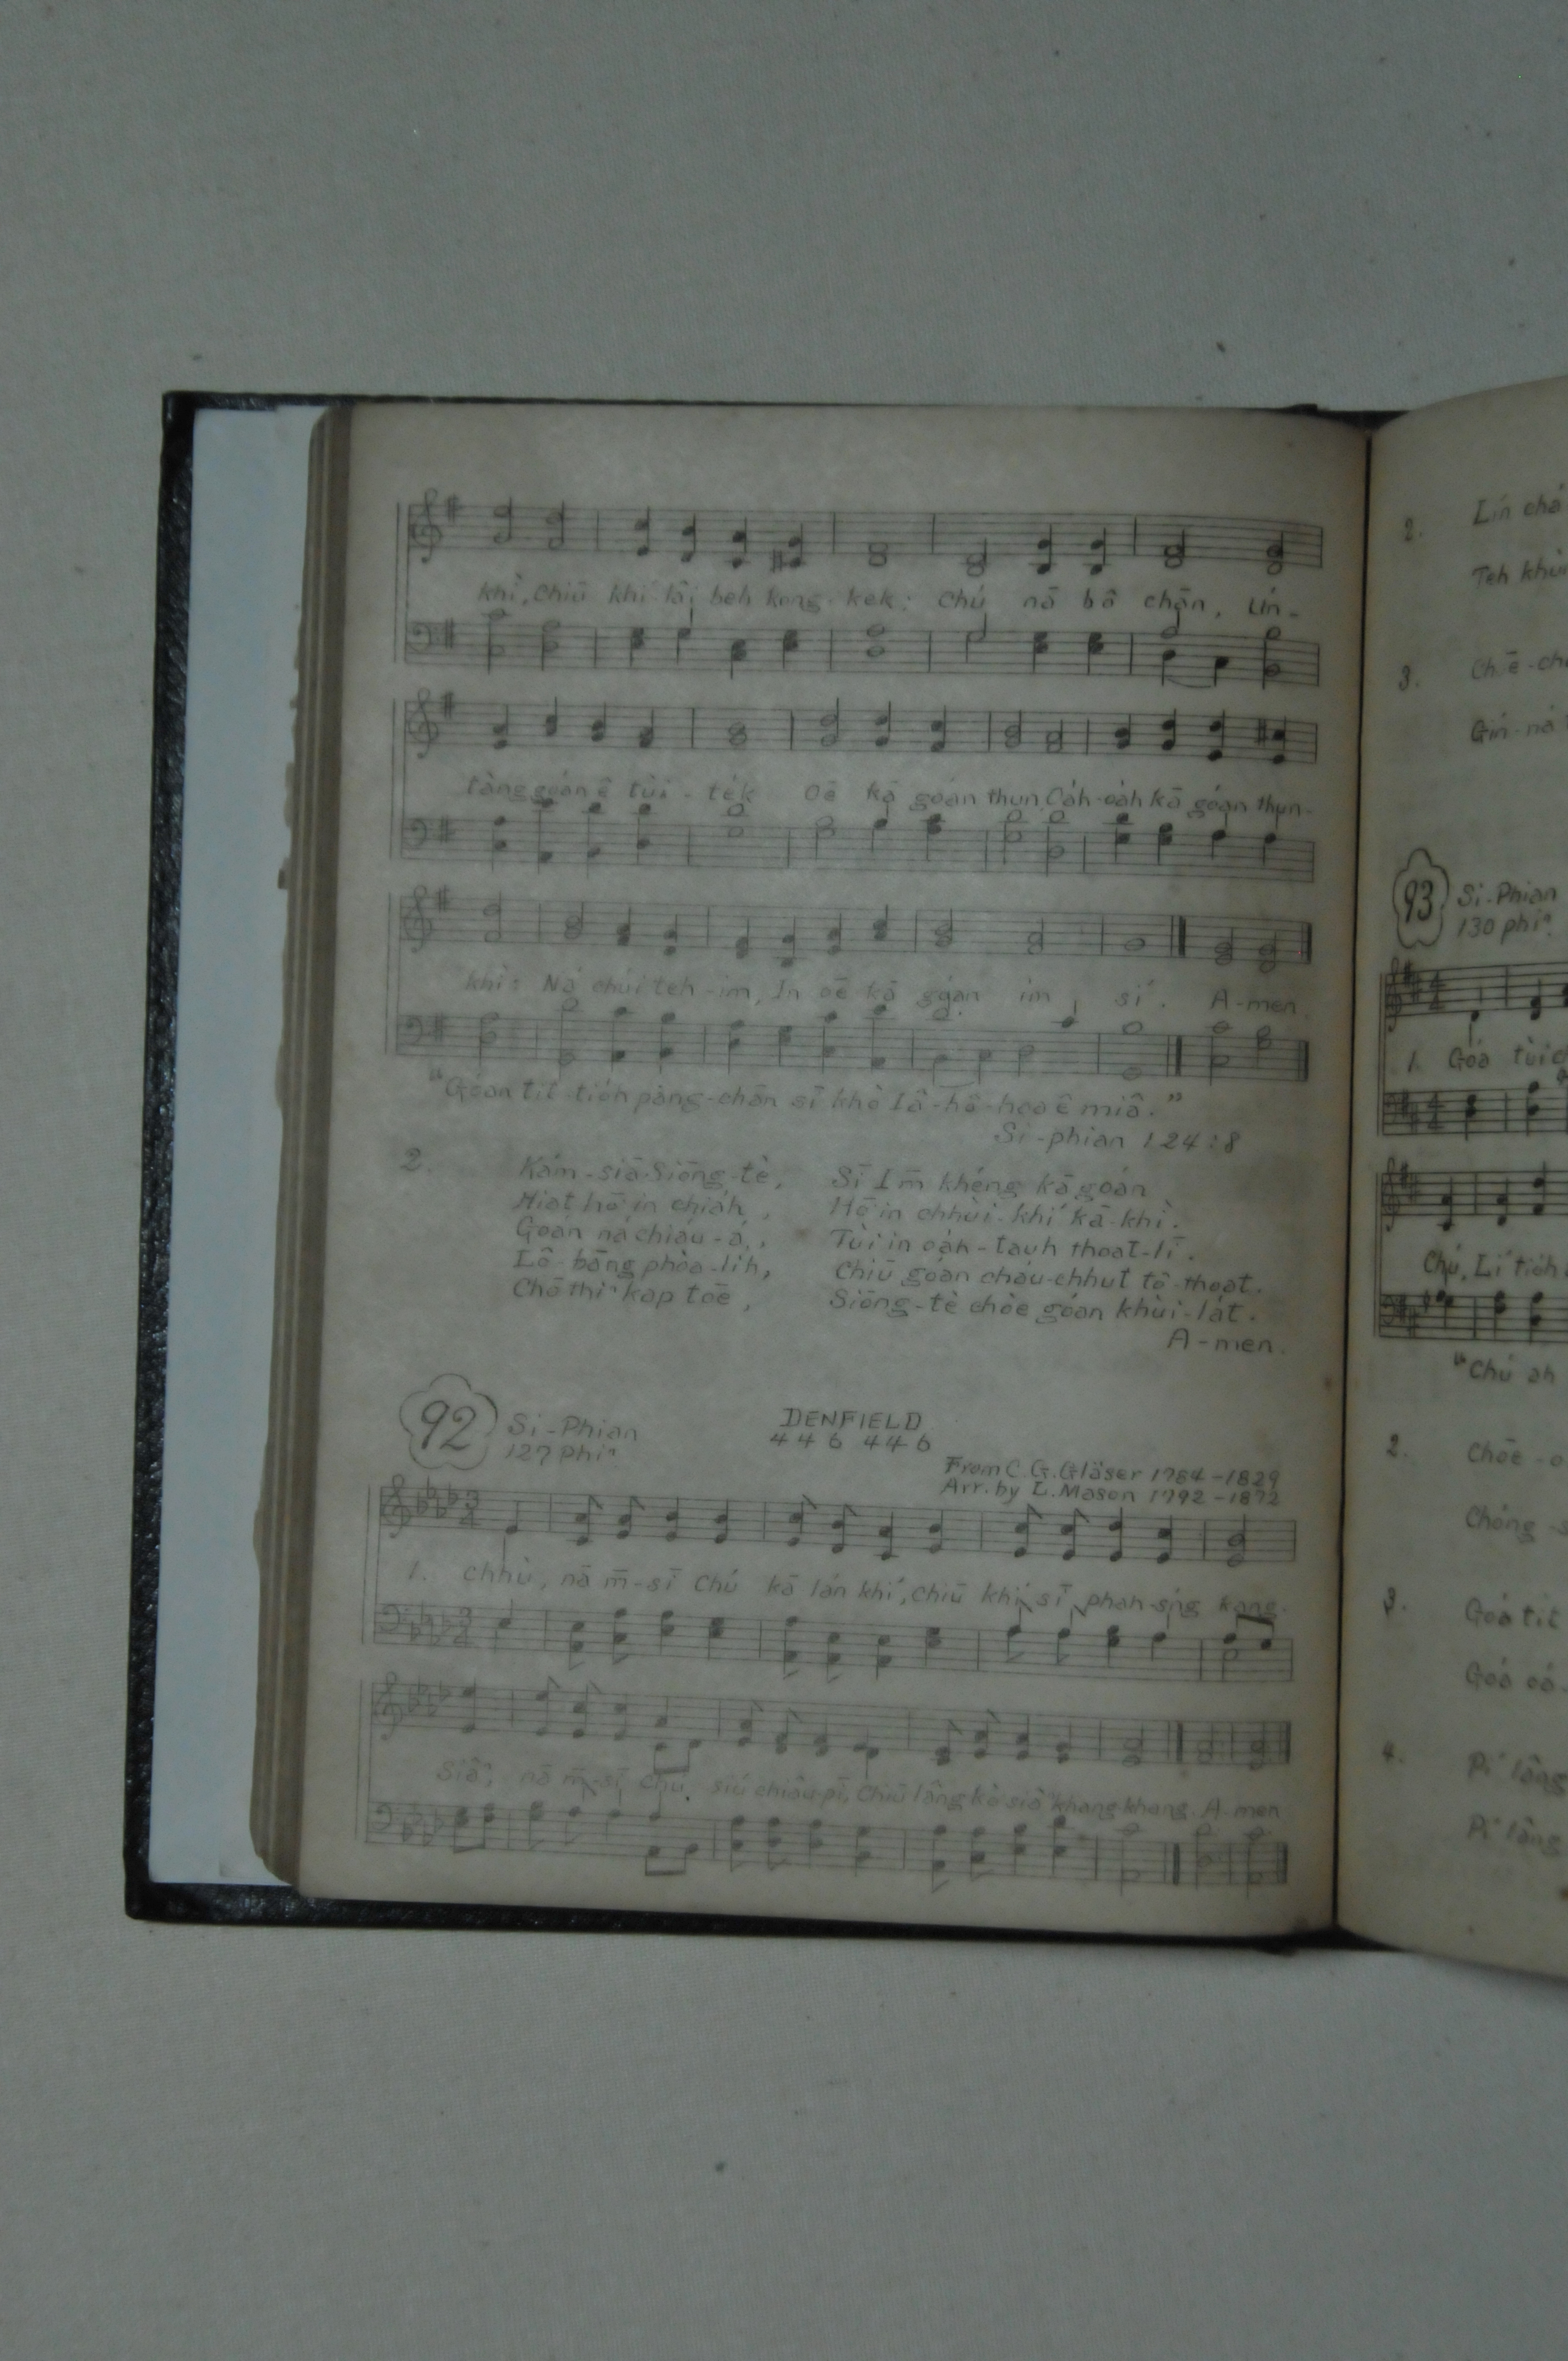 khì, chiū khí-lâi beh kong-kek; Chú nā bô chān, Lín-
tàng goán ê tùi-tèk Oē kā goán thun, Oa̍h-oa̍h kā goán thun-
khì: Ná chúi teh-im, In oē kā goán im sí. A-men.
"Goán tit-tio̍h pàng-chān sī khò Iâ-hô-hoa ê miâ."
Si-phian 124:8
2. Kám-siā Siōng-tè, Sī Im̄ khéng kā goán
Hiat hō͘ in chia̍h, Hō͘ in chhùi-khí kā-khì.
Goán ná chiáu-á, Tùi in oán-tauh thoat-lī.
Lô-bāng phòa-li̍h, Chiū goán cháu-chhut tô-thoat.
Chō thiⁿ kap tōe, Siōng-tè chòe goán khùi-la̍t.
A-men.
92 Si-Phian DENFIELD
127 phiⁿ 4 4 6 4 4 6
From C. G. Gläser 1784-1829
Arr. by L. Mason 1792-1872
1. chhù, nā m̄-sī Chú kā lán khí, chiū khí sī phah-sńg kang.
Siâⁿ, nā m̄-sī Chú siú chiâu-pī, Chiū lâng kò͘ siâⁿ khang-khang. A-men
2. Lín chá
Teh khùi
3. Chē-chē
Gín-ná
93 Si-Phian
130 phiⁿ
1. Góa tùi
Chú, Lí tio̍h
"Chú ah
2. Chōe-
Chóng-
3. Góa tit
Góa
4. Pí lâng
Pí lâng